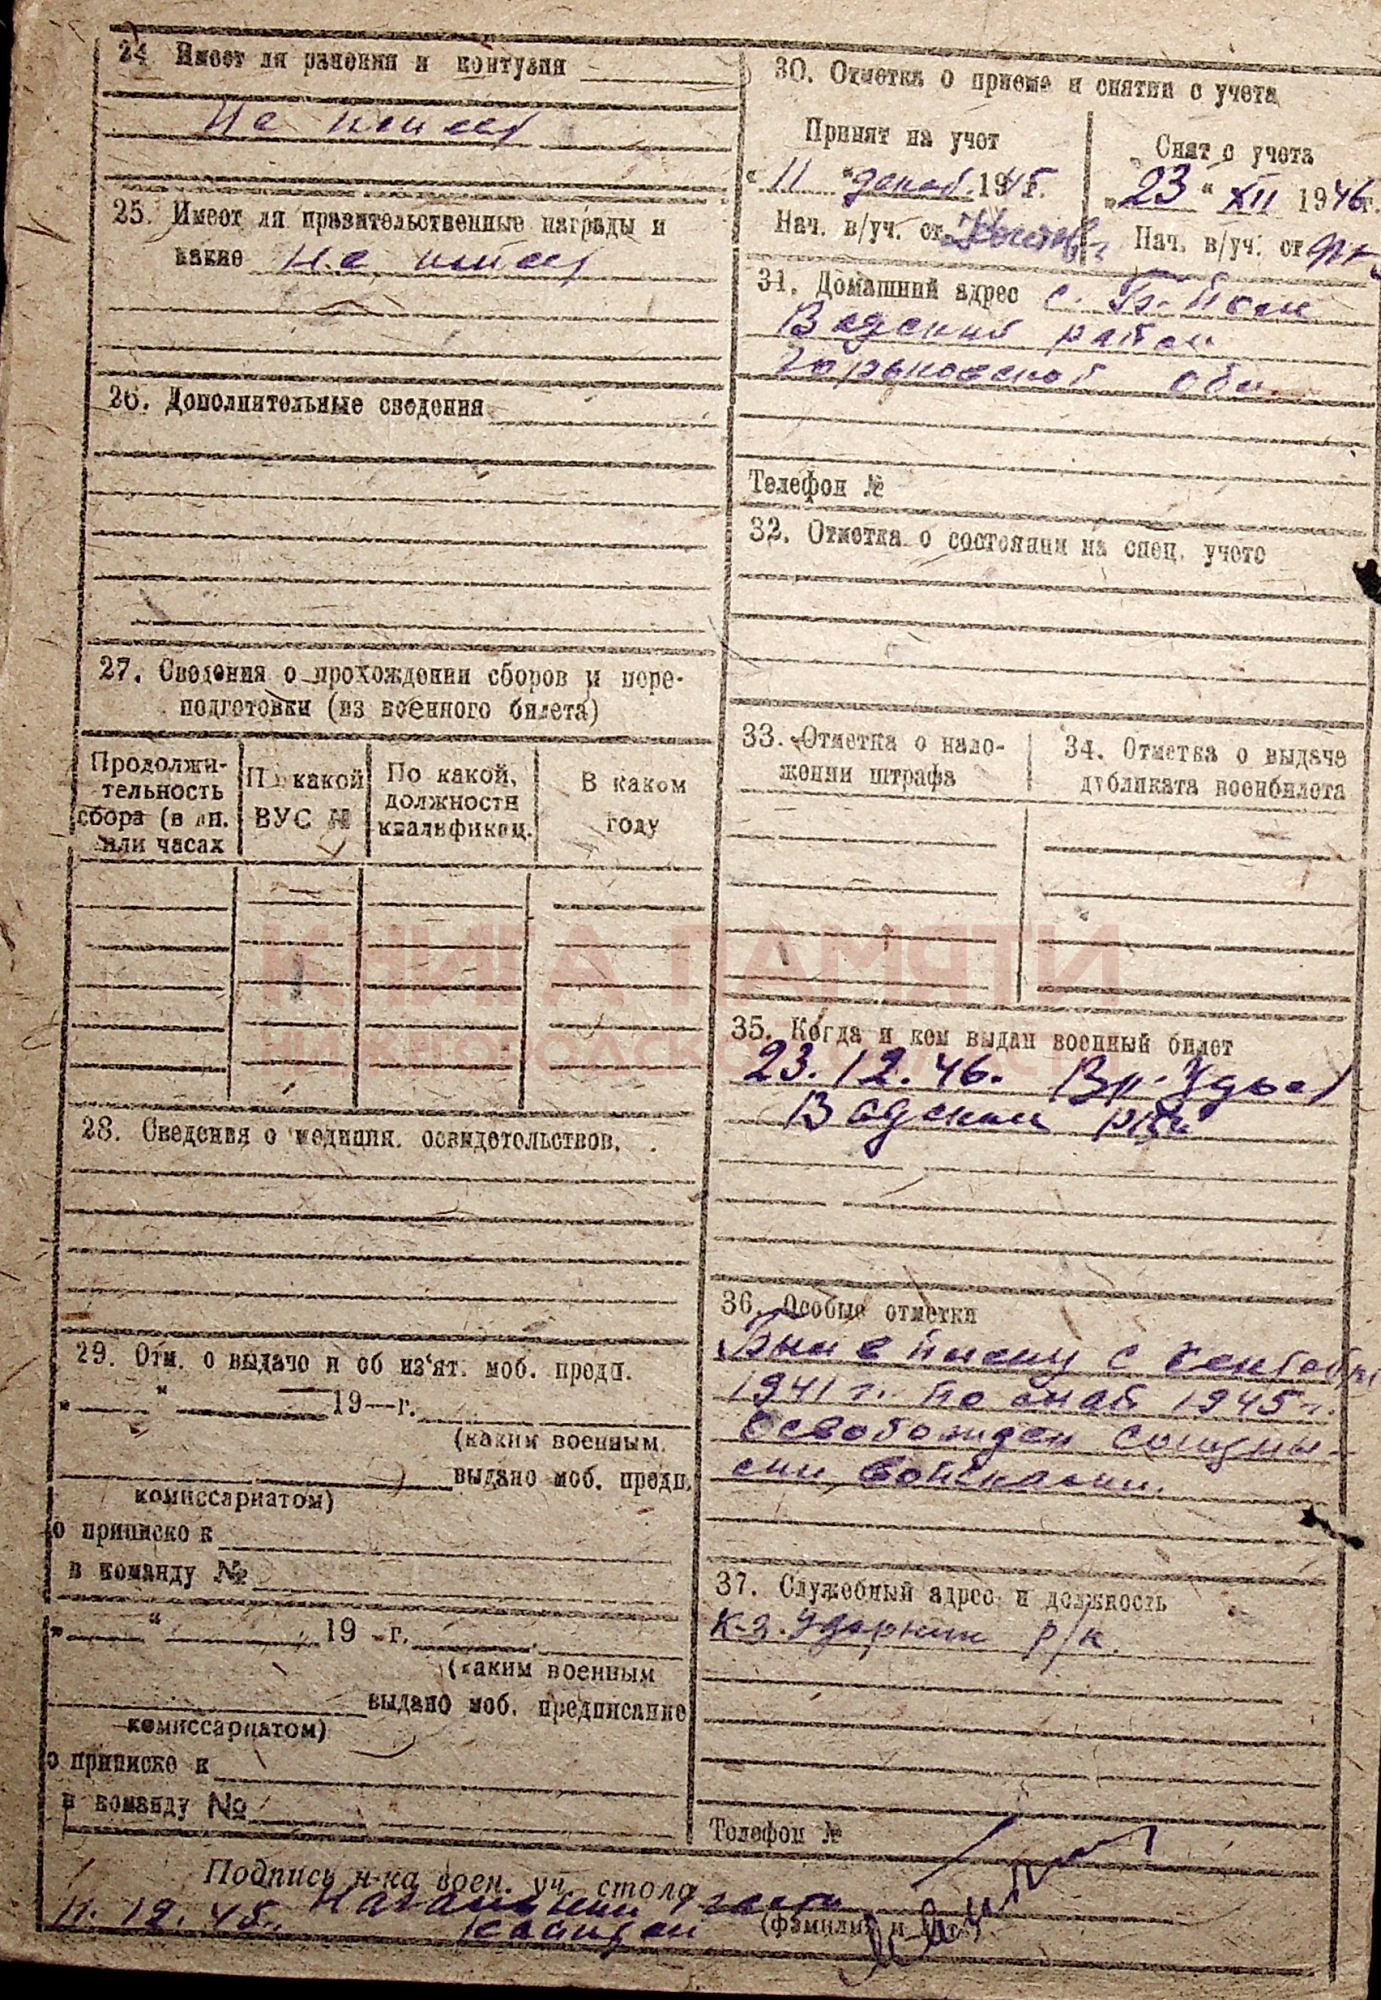 24 Имеет ли ранения и контузия
Не имеет
25. Имеет ли правительственные награды и
какие Не имеет
26. Дополнительные сведения
27. Сведения о прохождении сборов и пере-
подготовки (из военного билета)
Продолжи-
тельность
сбора (в дн.
или часах
По какой
ВУС №
По какой,
должности
квалификац.
В каком
году
28. Сведения о медицин. освидетельствов.
29. Отм. о выдаче и об из'ят. моб. предп.
„ “ 19—г.
(каким военным
выдано моб. предп.
комиссариатом)
о приписке к
в команду №
„ “ 19 г.
(каким военным
выдано моб. предписание
комиссариатом)
о приписке к
в команду №
30. Отметка о приеме и снятии с учета
Принят на учет
„ 11 “ декаб. 1945г.
Нач. в/уч. ст.
Снят с учета
„ 23 “ XII 1946г.
Нач. в/уч. ст.
31. Домашний адрес с.
Вадский район
Горьковской обл.
Телефон №
32. Отметка о состоянии на спец. учете
33. Отметка о нало-
жении штрафа
34. Отметка о выдаче
дубликата военбилета
КНИГА ПАМЯТИ
НИЖЕГОРОДСКОЙ ОБЛАСТИ
35. Когда и кем выдан военный билет
23.12.46.
Вадским РВК
36. Особые отметки
Был в плену с сентября
1941 г. по май 1945 г.
Освобожден союзны-
ми войсками.
37. Служебный адрес и должность
к-з. Ударник р/к.
Телефон №
Подпись н-ка воен. уч. стола
11.12.45. Начальник части
капитан
(фамилия и